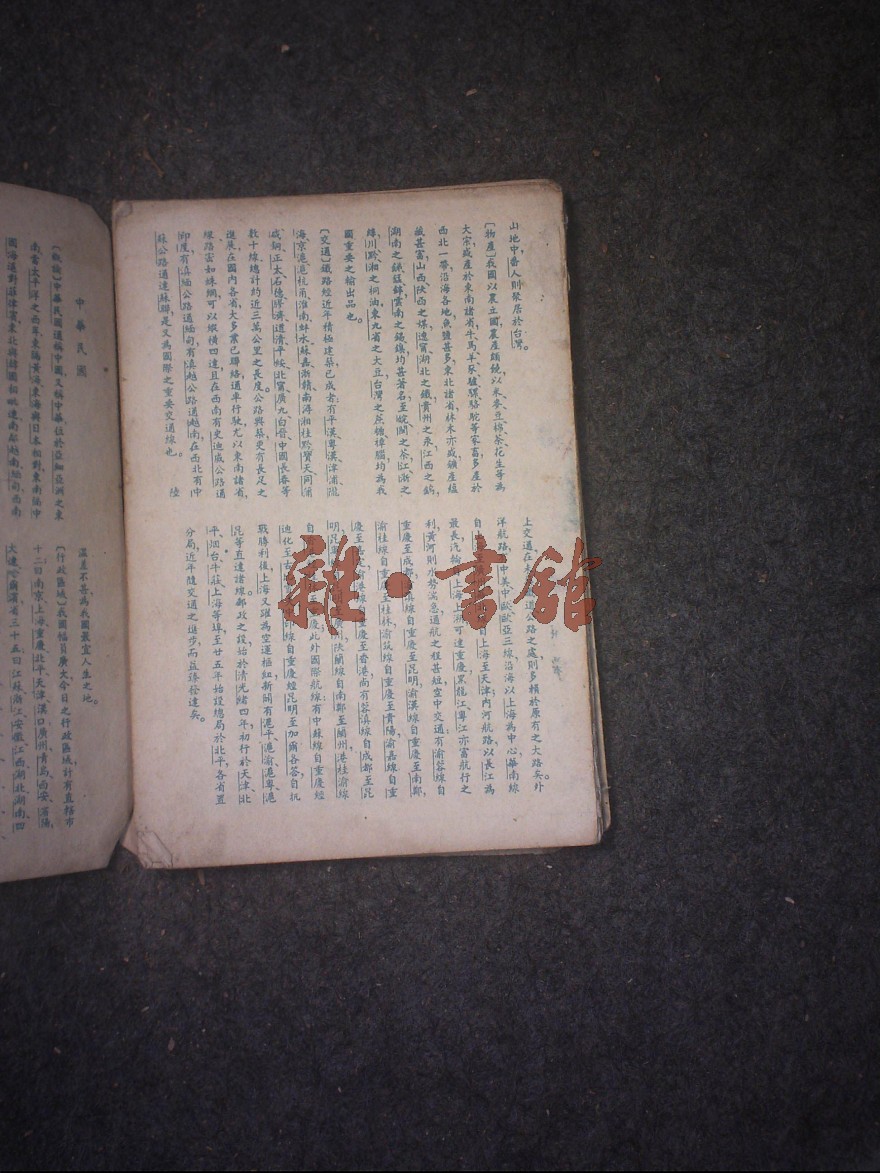 山地中番人則聚居於台灣。
〔物產〕我國以農立國農產饒饒,以米、麥、豆、棉、茶、花生等為
大宗盛產於東南諸省,牛、馬、羊、豕、驢、騾、駱駝等家畜多產於
西北一帶沿海各地,魚鹽甚多東北諸省林木亦盛礦產蘊
藏甚富山西陝西之煤遼寧湖北之鐵貴州之汞江西之鎢,
湖南之銻錳鋅雲南之錫鎳均甚著名;至皖閩之茶江浙之
絲川黔湘之桐油,東九省之大豆台灣之蔗糖樟腦均為我
國重要之輸出品也。
〔交通〕鐵路經近年積極建築已成者:有平漢、粵漢、津浦、隴
海、京滬、滬杭甬、淮南、蚌水、蘇嘉、浙贛、南潯、湘桂、黔貴、天同、浦
數十線總計約近三萬公里之長度。公路興築更有長足之
進展在國內各省大多業已聯絡通車行駛尤以東南諸省,
線路密如蛛網可以縱橫四達且在西南有史迪威公路通
印度,有滇緬公路通緬甸,有滇越公路通越南,在西北有中
蘇公路通達蘇聯,是又為國際之重要交通線也。 陸
上交通在未
公路之處則多積於原有之大路矣。外
洋航路,
中美中歐
亞三線沿海以上海為中心華南線
自上海至天津;內河航路,以長江為
最長汽輪
上海上溯可達重慶黑龍江粵江亦富航行之
利,黃河則水勢湍急通航之程甚短空中交通有渝蓉線自
重慶至成都,
滇線自重慶至昆明,渝漢線自重慶至南鄭,
渝桂線自重
至桂林,渝筑線自重慶至貴陽,渝嘉線自重
慶至
渝港線
重慶至香港,尚有蓉滇線自成都至昆
明,昆
廣州,陝蘭線自南鄭至蘭州,港桂渝線
自
至重慶此外國際航線:有中蘇線自重慶經
迪化至
線自重慶經昆明至加爾各答自抗
戰勝利後,上海又躍為空運樞紐新開有滬平、滬渝、滬粵、滬
昆等直達諸線郵政之設始於清光緒四年,初行於天津、北
平、烟台、牛莊、上海等埠至廿五年始設總局於北平,各省置
分局,近年隨交通之進步,而益臻發達矣。
中華民國
〔概論〕中華民國通稱中國,又稱中華位於亞細亞洲之東
南當太平洋之西岸東臨黃海、東海與日本相對東南隔中
國海遙對菲律賓,東北與韓國相毗連南鄰越南緬甸,西南
溫差不甚為我國最宜人生之地。
〔行政區域〕我國幅員廣大今日之行政區域計有直轄市
十二曰南京、上海、重慶、北平、天津、漢口、廣州、青島、西安、瀋陽、
大連、哈爾濱省三十五曰江蘇、浙江、安徽、江西、湖北、湖南、四